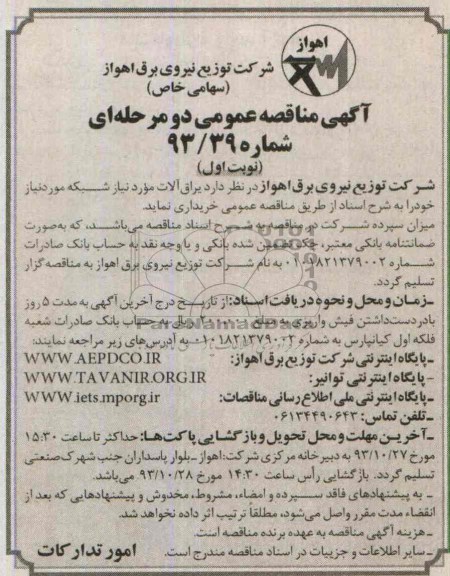 اهواز
شرکت توزیع نیروی برق اهواز
(سهامی خاص)
آگهی مناقصه عمومی دو مرحله‌ای
شماره ۹۳/۳۹
(نوبت اول)
شرکت توزیع نیروی برق اهواز در نظر دارد یراق آلات مورد نیاز شبکه موردنیاز
خود را به شرح اسناد از طریق مناقصه عمومی خریداری نماید.
میزان سپرده شرکت در مناقصه به شرح اسناد مناقصه می‌باشد، که به‌صورت
ضمانتنامه بانکی معتبر، چک تضمین شده بانکی و یا وجه نقد به حساب بانک صادرات
شماره ۰۱۰۱۸۲۱۳۷۹۰۰۲ به نام شرکت توزیع نیروی برق اهواز به مناقصه گزار
تسلیم گردد.
ـ زمان و محل و نحوه دریافت اسناد: از تاریخ درج آخرین آگهی به مدت ۵ روز
با در دست داشتن فیش واریزی به مبلغ ریال به حساب بانک صادرات شعبه
فلکه اول کیانپارس به شماره به آدرس‌های زیر مراجعه نمایند:
ـ پایگاه اینترنتی شرکت توزیع برق اهواز: WWW.AEPDCO.IR
- پایگاه اینترنتی توانیر: WWW.TAVANIR.ORG.IR
ـ پایگاه اینترنتی ملی اطلاع رسانی مناقصات: WWW.iets.mporg.ir
ـ تلفن تماس: ۰۶۱۳۴۴۹۰۶۴۳
ـ آخرین مهلت و محل تحویل و بازگشایی پاکت‌ها: حداکثر تا ساعت ۱۵:۳۰
مورخ ۹۳/۱۰/۲۷ به دبیرخانه مرکزی شرکت: اهواز ـ بلوار پاسداران جنب شهرک صنعتی
تسلیم گردد. بازگشایی رأس ساعت ۱۴:۳۰ مورخ ۹۳/۱۰/۲۸ می‌باشد.
ـ به پیشنهادهای فاقد سپرده و امضاء، مشروط، مخدوش و پیشنهادهایی که بعد از
انقضاء مدت مقرر واصل می‌شود، مطلقاً ترتیب اثر داده نخواهد شد.
ـ هزینه آگهی مناقصه به عهده برنده مناقصه است.
ـ سایر اطلاعات و جزییات در اسناد مناقصه مندرج است.
امور تدارکات